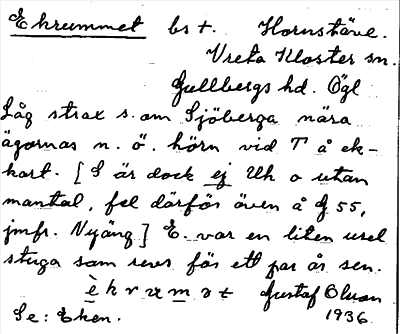 Ekrummet bst. Hornstäve.
Vreta Kloster sn.
Gullbergs hd. Ögl
Låg strax s. om Sjöberga nära
ägornas n. ö. hörn vid T å ek-
kart. [S är dock ej Uh o utan
mantal, fel därför även å G 55,
jmfr. Nyäng] E. var en liten usel
stuga som revs för ett par år sen.
Gustaf Olsson
Se: Eken. 1936.